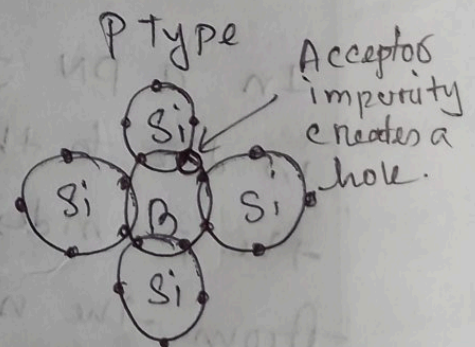 P Type
Acceptor
impurity
creates a
hole.
Si
Si
B
Si
Si